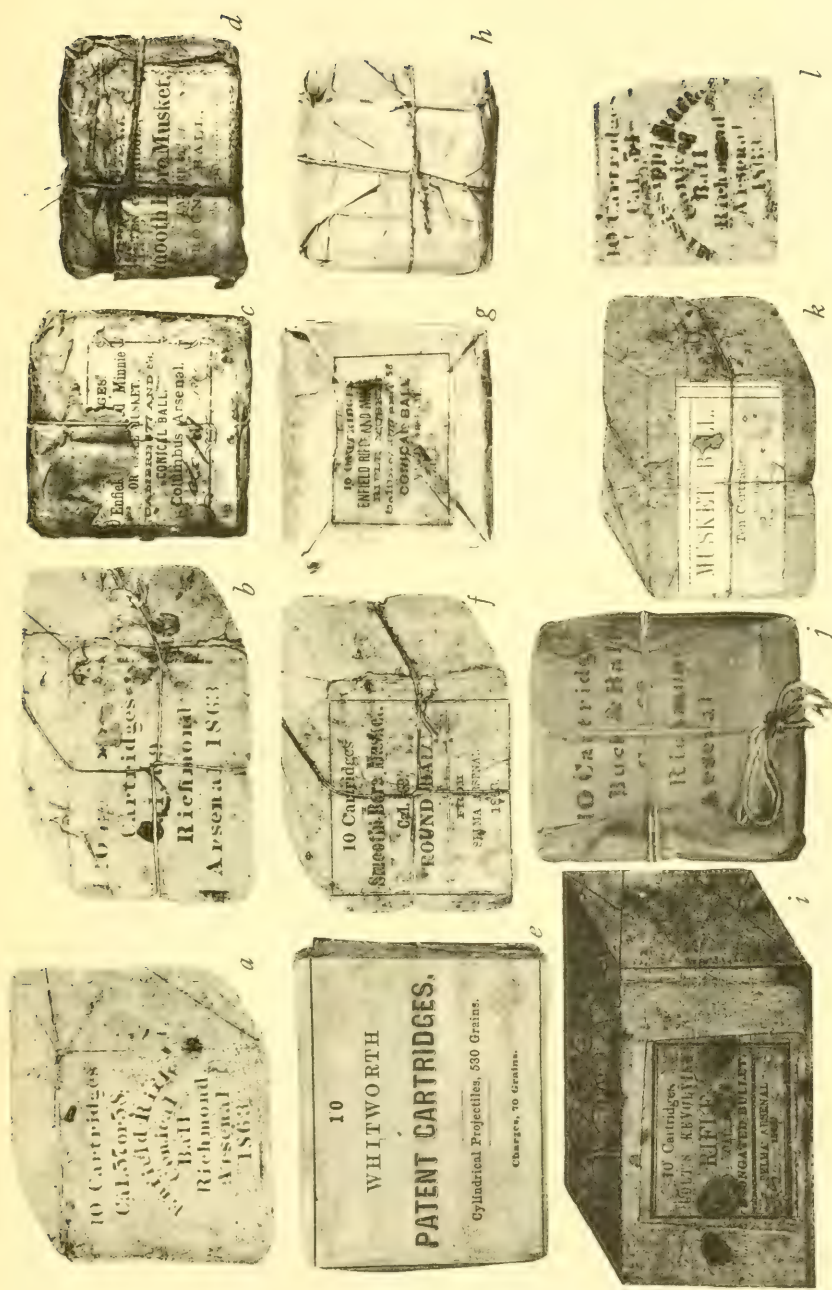 a
10 Cartridges
Cal. 57 or 58
Enfield Rifle
Conical
Ball
Richmond
Arsenal
1863
b
Cartridges
Richmond
Arsenal 1863
c
Enfield Minnie
OR MUSKET.
CALIBRE 577 AND 58.
CONICAL BALL.
Columbus Arsenal.
d
Smooth Bore Musket,
ROUND BALL.
e
10
WHITWORTH
PATENT CARTRIDGES,
Cylindrical Projectiles, 530 Grains.
Charges, 70 Grains.
f
10 Cartridges
Smooth Bore Musket
Cal.
ROUND BALL
FROM
SELMA ARSENAL
g
10 CARTRIDGES
ENFIELD RIFLE AND
RIFLE MUSKET
CONICAL BALL
h
i
10 Cartridges
COLT'S REVOLVING
RIFLE
ELONGATED BULLET
SELMA ARSENAL
j
10 Cartridg
Buck & Ball
Richmond
Arsenal
k
MUSKET BALL.
Ten Cartri
l
10 Cartridges
Cal. 54
Mississippi
Conical
Ball
Richmond
Arsenal
1863